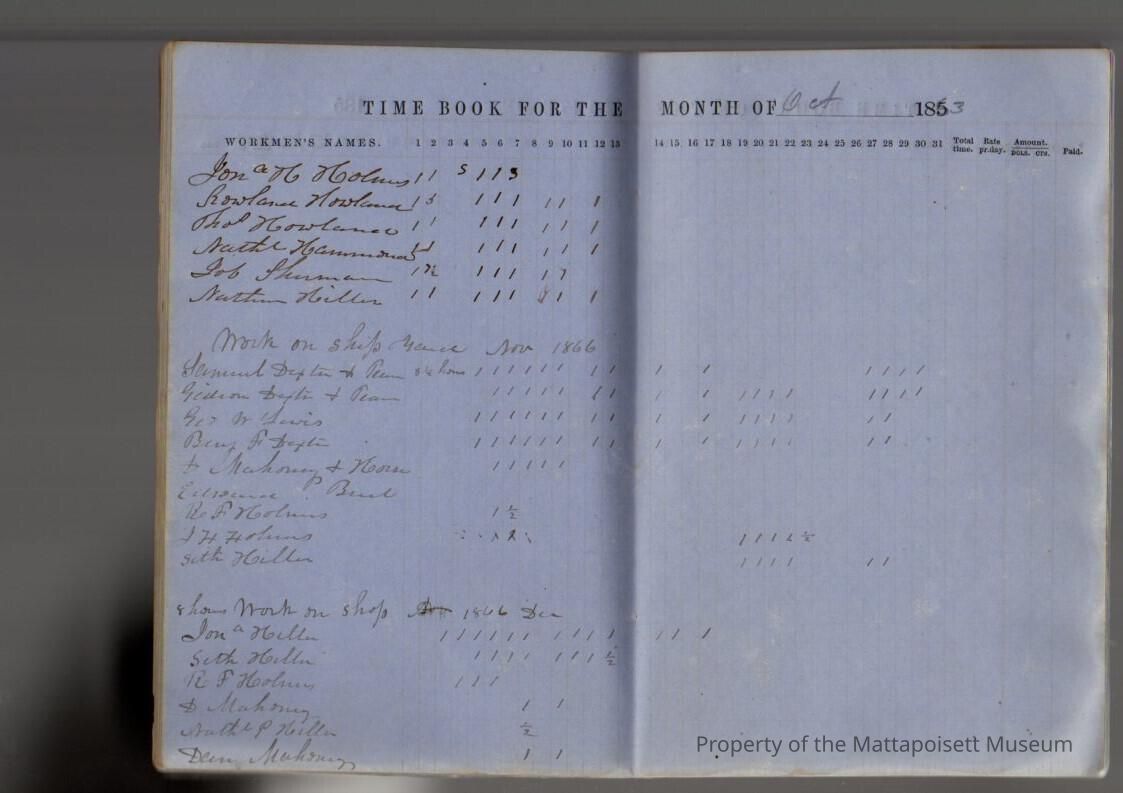 TIME BOOK FOR THE MONTH OF Oct 1853
WORKMEN'S NAMES. 1 2 3 4 5 6 7 8 9 10 11 12 13 14 15 16 17 18 19 20 21 22 23 24 25 26 27 28 29 30 31 Total time. Rate pr.day. Amount. DOLS. CTS. Paid.
Jona H Holmes 1 1 1 1
Rowland Howland 1 1 1 1 1 1 1
Thos Howland 1 1 1 1 1 1 1 1
Nathl Hammond 1 1 1 1 1 1
Job Sherman 1 1 1 1 1
Nathan Hiller 1 1 1 1 1 1 1
Work on ship Nov 1866
Samuel Dexter & Team hours 1 1 1 1 1 1 1 1 1 1 1 1 1 1
Gideon Dexter & Team 1 1 1 1 1 1 1 1 1 1 1 1 1 1 1 1 1
Geo W Lewis 1 1 1 1 1 1 1 1 1 1 1 1 1 1 1 1
Benj F Dexter 1 1 1 1 1 1 1 1 1 1 1 1 1 1 1 1
Mahoney & Horse 1 1 1 1 1
R F Holmes 1 ½
J H Holmes 1 1 1 1 ½
Seth Hiller 1 1 1 1 1 1
8 hours Work on shop 1866 Dec
Jona Hiller 1 1 1 1 1 1 1 1 1 1 1 1 1
Seth Hiller 1 1 1 1 1 1 1 ½
R F Holmes 1 1 1
D Mahoney 1 1
Nathl P Hiller ½
Mahoney 1 1
Property of the Mattapoisett Museum